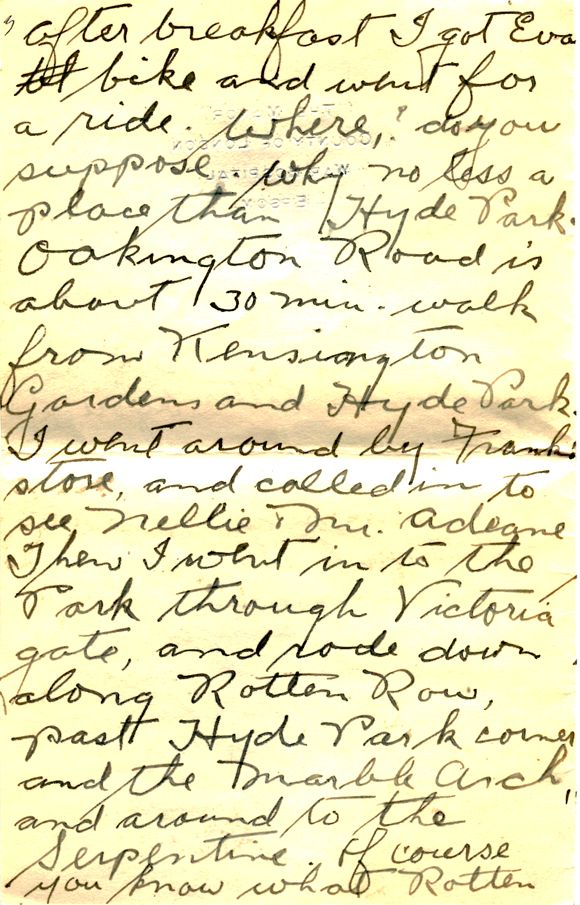 " after breakfast I got Eva
bike and went for
a ride. Where,? do you
suppose why no less a
place than Hyde Park.
Oakington Road is
about 30 min. walk
from Kensington
Gardens and Hyde Park.
I went around by Frank's
store, and called in to
see Nellie & Mr. Adeane
Then I went in to the
Park through Victoria
gate, and rode down
along Rotten Row,
past Hyde Park corner
and the Marble Arch,
and around to the
Serpentine. Of course
you know what Rotten